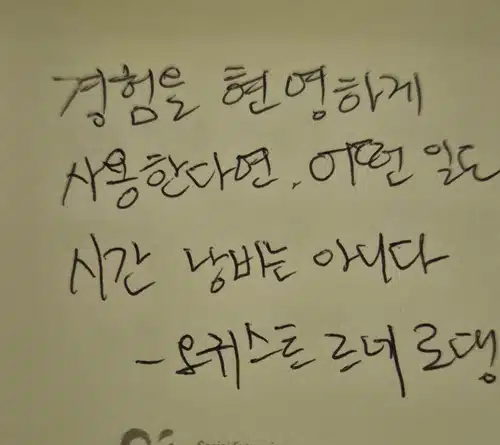 경험을 현영하게
사용한다면, 어떤 일도
시간 낭비는 아니다
- 오귀스트 르네 로댕